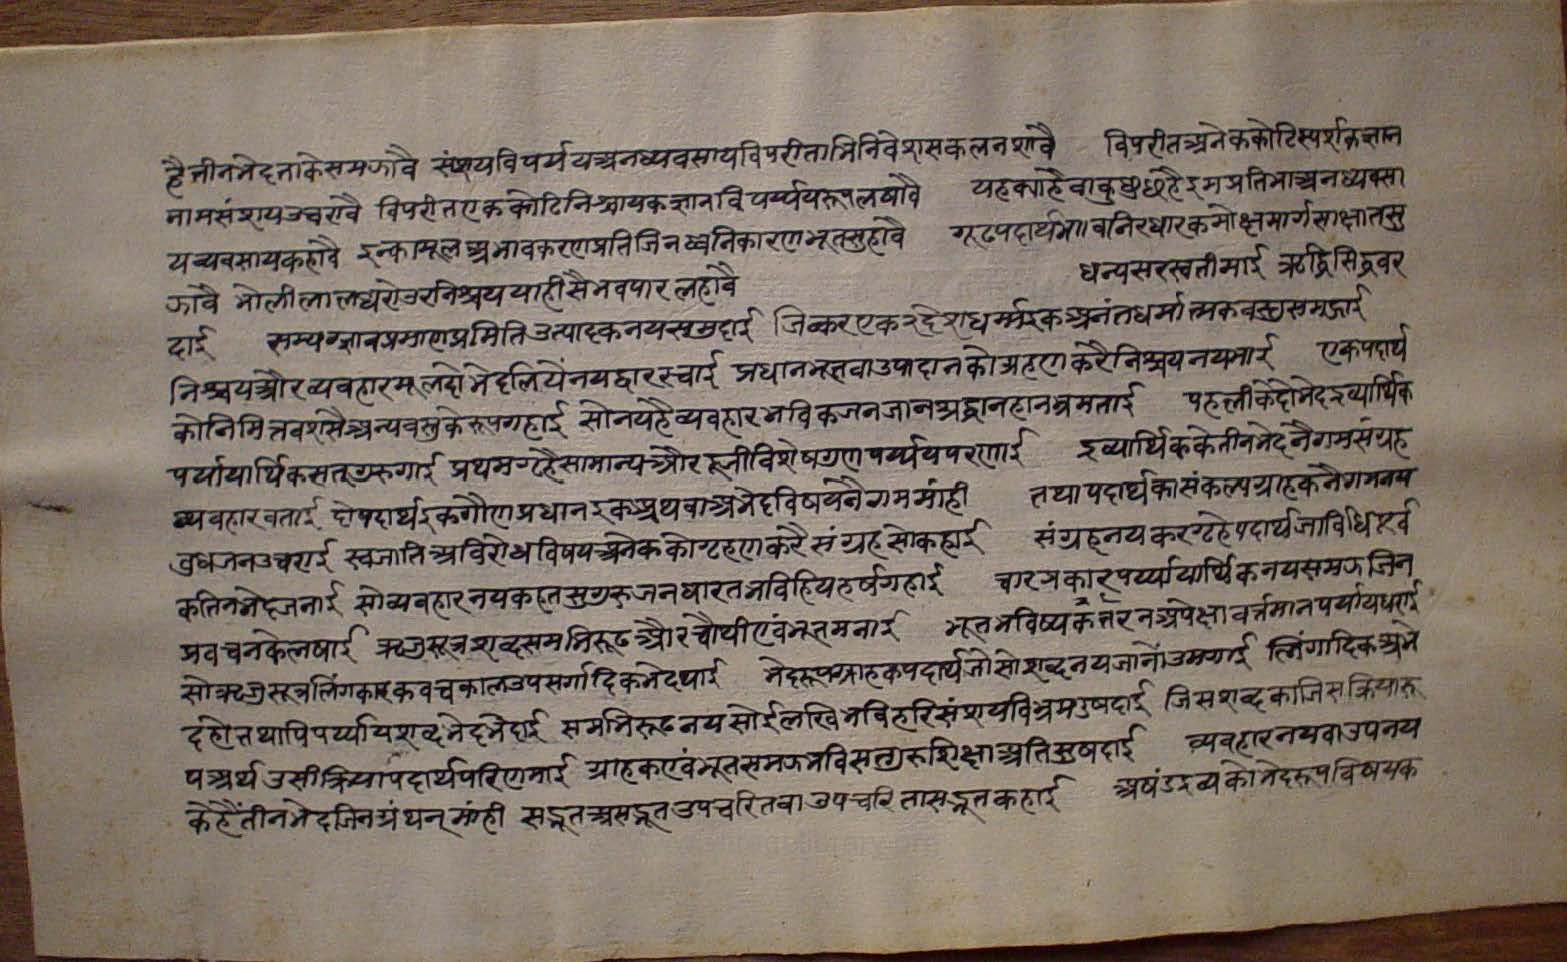 है तीन भेद ताके समझावै संशय विपर्यय अनध्यवसाय विपरीताभिनिवेश सकल नशावै विपरीत अनेक कोटि स्पर्शक ज्ञान
नाम संशय उचरावै विपरीत एक कोटि निश्चायक ज्ञान विपर्य्यय रूप लषावै यह क्या है वा कुछ है इम प्रतिभा अनध्यवसा
य व्यवसाय कहावै इनका मूल अभाव करण प्रति जिनध्वनि कारणभूत सुहावै गूढ पदार्थ निरधारक मोक्षमार्ग साक्षात सु
झावै भोलीलाल धरो उर निश्चय याही सै भवपार लहावै धन्य सरस्वती माई ऋद्धि सिद्धवर
दाई सम्यग्ज्ञान प्रमाण प्रमिति उत्पादक नय समुदाई जिन्कर एकरदेश धर्म्म इक अनंत धर्मात्मक वस्तु समझाई
निश्चय और व्यवहार मूल दो भेद लियें नय द्वार रचाई प्रधानभूत वा उपादान को ग्रहण करै निश्चय नय भाई एक पदार्थ
को निमित्तवश सै अन्य वस्तु के रूप गहाई सो नय है व्यवहार भविकजन जान श्रद्धान हान भ्रमताई पहली के दो भेद द्रव्यार्थिक
पर्यायार्थिक सतगुरु गाई प्रथम गहै सामान्य और दूजी विशेष गुण पर्य्यय परणाई द्रव्यार्थिक के तीन भेद नैगम संग्रह
व्यवहार बताई दो पदार्थ इक गौण प्रधान इक अथवा अभेद विषय नैगम मांही तथा पदार्थ का संकल्प ग्राहक नैगम नय
बुधजन उचराई स्वजाति अविरोध विषय अनेक को ग्रहण करै संग्रह सो कहाई संग्रह नय कर गहे पदार्थ जा विधि पूर्व
क तिन भेद जनाई सो व्यवहार नय कहत सुगुरु जन धारत भवि हिय हर्ष गहाई चार प्रकार पर्य्यायार्थिक नय समझ जिन
प्रवचन के लषाई ऋजुसूत्र शब्द समभिरूढ और चौथी एवंभूत मनाई भूत भविष्यक अपेक्षा वर्त्तमान पर्याय धराई
सो ऋजुसूत्र लिंग कारक वच काल उपसर्गादिक भेद थाई भेदरूप ग्राहक पदार्थ जो सो शब्द नय जानो उमगाई लिंगादिक अभे
द हो तथापि पर्य्याय शब्द भेद भेदाई समभिरूढ नय सोई लखि भवि हरि संशय विभ्रम दुषदाई जिस शब्द का जिस क्रिया रू
प अर्थ उसी क्रिया पदार्थ परिणमाई ग्राहक एवंभूत समझ भवि सतगुरु शिक्षा अति सुषदाई व्यवहार नय वा उपनय
के हैं तीन भेद जिन ग्रंथन मांही सद्भूत असद्भूत उपचरित वा उपचरितासद्भूत कहाई अषंड द्रव्य को भेदरूप विषयक